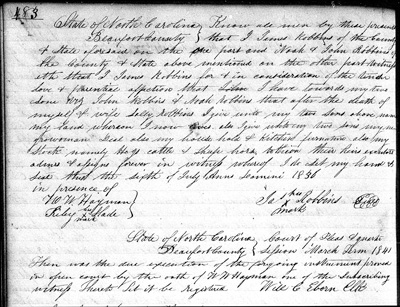 483
State of North Carolina } Know all men by these presents
Beaufort County } that I James Robbins of the County
& State aforsaid on the one part and Noah & John Robbins of
the County & State above mentioned on the other part witness
eth that I James Robbins for & in consideration of the
love & parential affection that I have towards my two
sons John Robbins & Noah Robbins that after the death of
myself & wife Sally Robbins I give unto my two sons above named
my land whereon I now live also I give unto my two sons my
also my house hold & kitchen furniture also my
Stock namely Hogs cattle & sheep to them their heirs
& assigns forever in witness whereof I do set my hand &
seal this the 6th of July Anno Domini 1836
in presence of
W W Hayman
Riley his x mark Slade
Ja his x mark Robbins Seal
State of North Carolina } Court of Pleas & quarter
Beaufort County } Session March Term 1841
Then was the due execution of the forgoing instrument proved
in open court by the oath of W W Hayman one of the Subscribing
witness thereto let it be registered Will C Eborn Clk